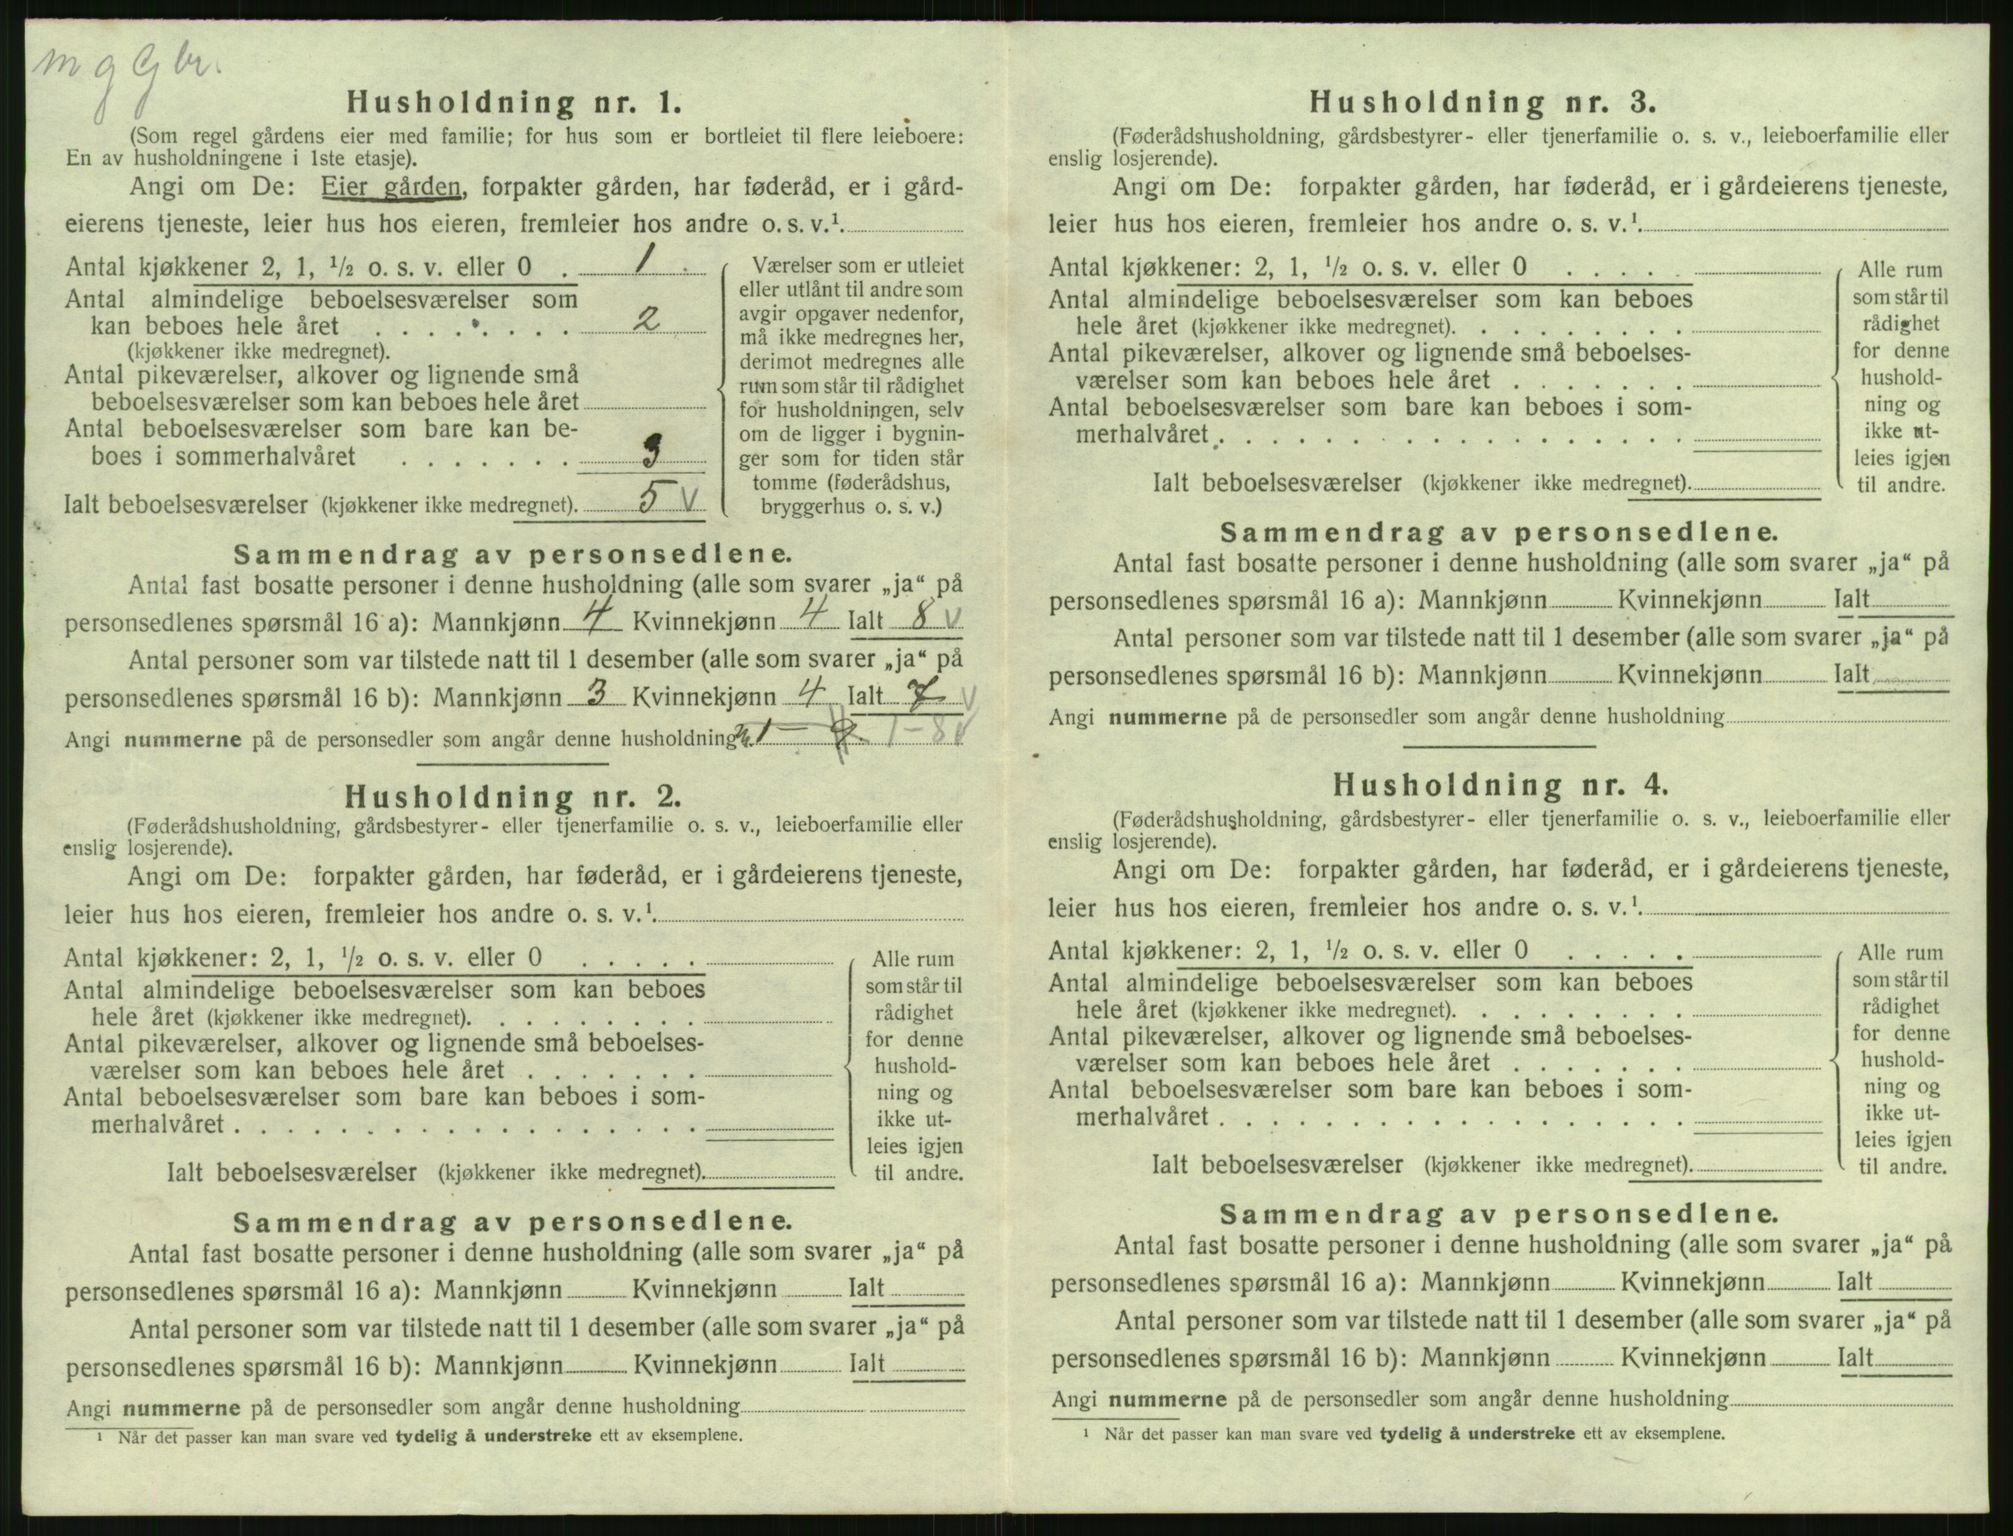 m g G br.
Husholdning nr. 1.
(Som regel gårdens eier med familie; for hus som er bortleiet til flere leieboere:
En av husholdningene i 1ste etasje).
Angi om De: Eier gården, forpakter gården, har føderåd, er i gård-
eierens tjeneste, leier hus hos eieren, fremleier hos andre o. s. v.¹.
Antal kjøkkener 2, 1, ½ o. s. v. eller 0 . 1
Antal almindelige beboelsesværelser som
kan beboes hele året . . . . . . . . 2
(kjøkkener ikke medregnet).
Antal pikeværelser, alkover og lignende små
beboelsesværelser som kan beboes hele året
Antal beboelsesværelser som bare kan be-
boes i sommerhalvåret . . . . . . . 3
Ialt beboelsesværelser (kjøkkener ikke medregnet). 5 V
Værelser som er utleiet
eller utlånt til andre som
avgir opgaver nedenfor,
må ikke medregnes her,
derimot medregnes alle
rum som står til rådighet
for husholdningen, selv
om de ligger i bygnin-
ger som for tiden står
tomme (føderådshus,
bryggerhus o. s. v.)
Sammendrag av personsedlene.
Antal fast bosatte personer i denne husholdning (alle som svarer „ja“ på
personsedlenes spørsmål 16 a): Mannkjønn 4 Kvinnekjønn 4 Ialt 8 V
Antal personer som var tilstede natt til 1 desember (alle som svarer „ja“ på
personsedlenes spørsmål 16 b): Mannkjønn 3 Kvinnekjønn 4 Ialt 7 V
Angi nummerne på de personsedler som angår denne husholdning 1 – 9. 1-8 V
Husholdning nr. 2.
(Føderådshusholdning, gårdsbestyrer- eller tjenerfamilie o. s. v., leieboerfamilie eller
enslig losjerende).
Angi om De: forpakter gården, har føderåd, er i gårdeierens tjeneste,
leier hus hos eieren, fremleier hos andre o. s. v.¹.
Antal kjøkkener: 2, 1, ½ o. s. v. eller 0 . . . . .
Antal almindelige beboelsesværelser som kan beboes
hele året (kjøkkener ikke medregnet). . . . . . . . .
Antal pikeværelser, alkover og lignende små beboelses-
værelser som kan beboes hele året . . . . . . .
Antal beboelsesværelser som bare kan beboes i som-
merhalvåret . . . . . . . . . . . . . . . . . .
Ialt beboelsesværelser (kjøkkener ikke medregnet).
Alle rum
som står til
rådighet
for denne
hushold-
ning og
ikke ut-
leies igjen
til andre.
Sammendrag av personsedlene.
Antal fast bosatte personer i denne husholdning (alle som svarer „ja“ på
personsedlenes spørsmål 16 a): Mannkjønn Kvinnekjønn Ialt
Antal personer som var tilstede natt til 1 desember (alle som svarer „ja“ på
personsedlenes spørsmål 16 b): Mannkjønn Kvinnekjønn Ialt
Angi nummerne på de personsedler som angår denne husholdning
¹ Når det passer kan man svare ved tydelig å understreke ett av eksemplene.
Husholdning nr. 3.
(Føderådshusholdning, gårdsbestyrer- eller tjenerfamilie o. s. v., leieboerfamilie eller
enslig losjerende).
Angi om De: forpakter gården, har føderåd, er i gårdeierens tjeneste,
leier hus hos eieren, fremleier hos andre o. s. v.¹.
Antal kjøkkener: 2, 1, ½ o. s. v. eller 0 . . . . .
Antal almindelige beboelsesværelser som kan beboes
hele året (kjøkkener ikke medregnet). . . . . . . . .
Antal pikeværelser, alkover og lignende små beboelses-
værelser som kan beboes hele året . . . . . . .
Antal beboelsesværelser som bare kan beboes i som-
merhalvåret . . . . . . . . . . . . . . . . . .
Ialt beboelsesværelser (kjøkkener ikke medregnet).
Alle rum
som står til
rådighet
for denne
hushold-
ning og
ikke ut-
leies igjen
til andre.
Sammendrag av personsedlene.
Antal fast bosatte personer i denne husholdning (alle som svarer „ja“ på
personsedlenes spørsmål 16 a): Mannkjønn Kvinnekjønn Ialt
Antal personer som var tilstede natt til 1 desember (alle som svarer „ja“ på
personsedlenes spørsmål 16 b): Mannkjønn Kvinnekjønn Ialt
Angi nummerne på de personsedler som angår denne husholdning
Husholdning nr. 4.
(Føderådshusholdning, gårdsbestyrer- eller tjenerfamilie o. s. v., leieboerfamilie eller
enslig losjerende).
Angi om De: forpakter gården, har føderåd, er i gårdeierens tjeneste,
leier hus hos eieren, fremleier hos andre o. s. v.¹.
Antal kjøkkener: 2, 1, ½ o. s. v. eller 0 . . . . .
Antal almindelige beboelsesværelser som kan beboes
hele året (kjøkkener ikke medregnet). . . . . . . . .
Antal pikeværelser, alkover og lignende små beboelses-
værelser som kan beboes hele året . . . . . . .
Antal beboelsesværelser som bare kan beboes i som-
merhalvåret . . . . . . . . . . . . . . . . . .
Ialt beboelsesværelser (kjøkkener ikke medregnet).
Alle rum
som står til
rådighet
for denne
hushold-
ning og
ikke ut-
leies igjen
til andre.
Sammendrag av personsedlene.
Antal fast bosatte personer i denne husholdning (alle som svarer „ja“ på
personsedlenes spørsmål 16 a): Mannkjønn Kvinnekjønn Ialt
Antal personer som var tilstede natt til 1 desember (alle som svarer „ja“ på
personsedlenes spørsmål 16 b): Mannkjønn Kvinnekjønn Ialt
Angi nummerne på de personsedler som angår denne husholdning
¹ Når det passer kan man svare ved tydelig å understreke ett av eksemplene.